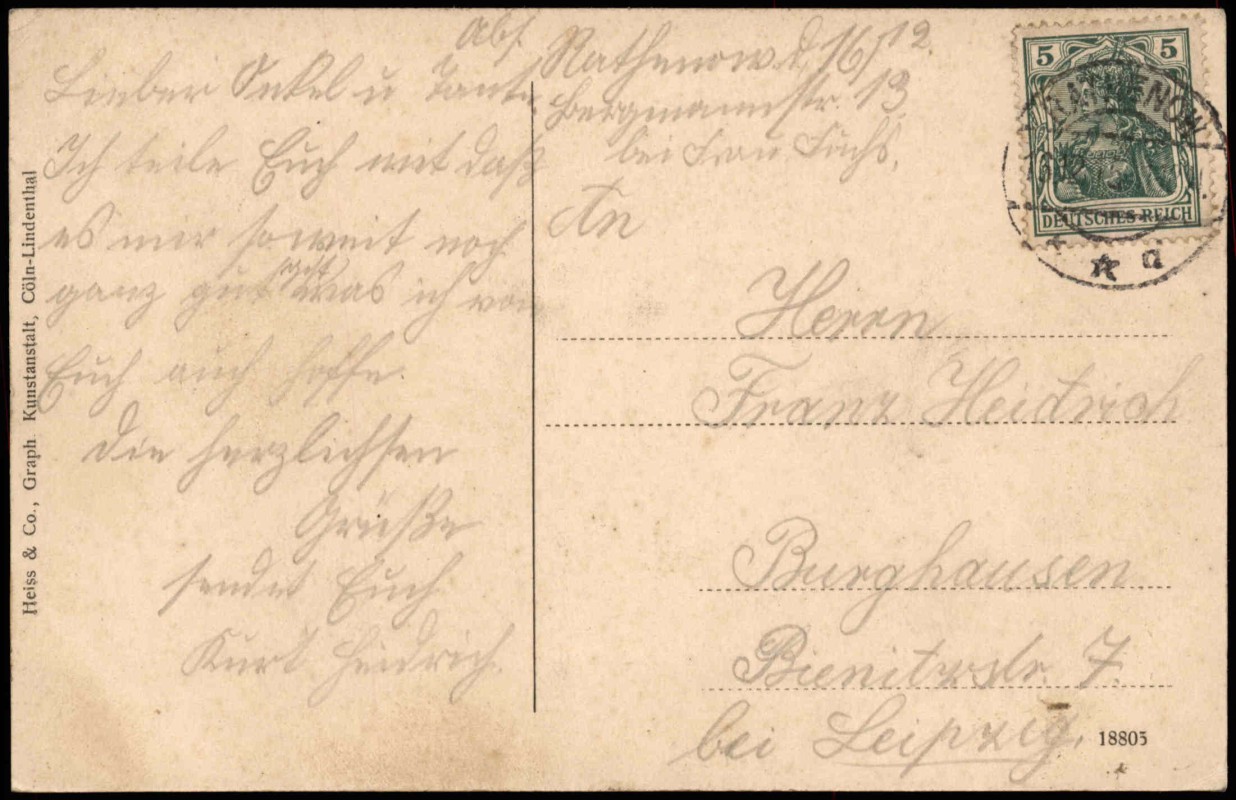 Abs.
Rathenow d. 16/12.
Bergmannstr. 13
bei Frau Fuchs.
Lieber Onkel u Tante
Ich teile Euch mit daß
es mir soweit noch
ganz gut geht was ich von
Euch auch hoffe.
Die herzlichsten
Grüße
sendet Euch
Kurt Heidrich.
An
Herrn
Franz Heidrich
Burghausen
Bienitzstr. 7.
bei Leipzig.
5 5
DEUTSCHES REICH
RATHENOW
* a
18805
Heiss & Co., Graph Kunstanstalt, Cöln-Lindenthal